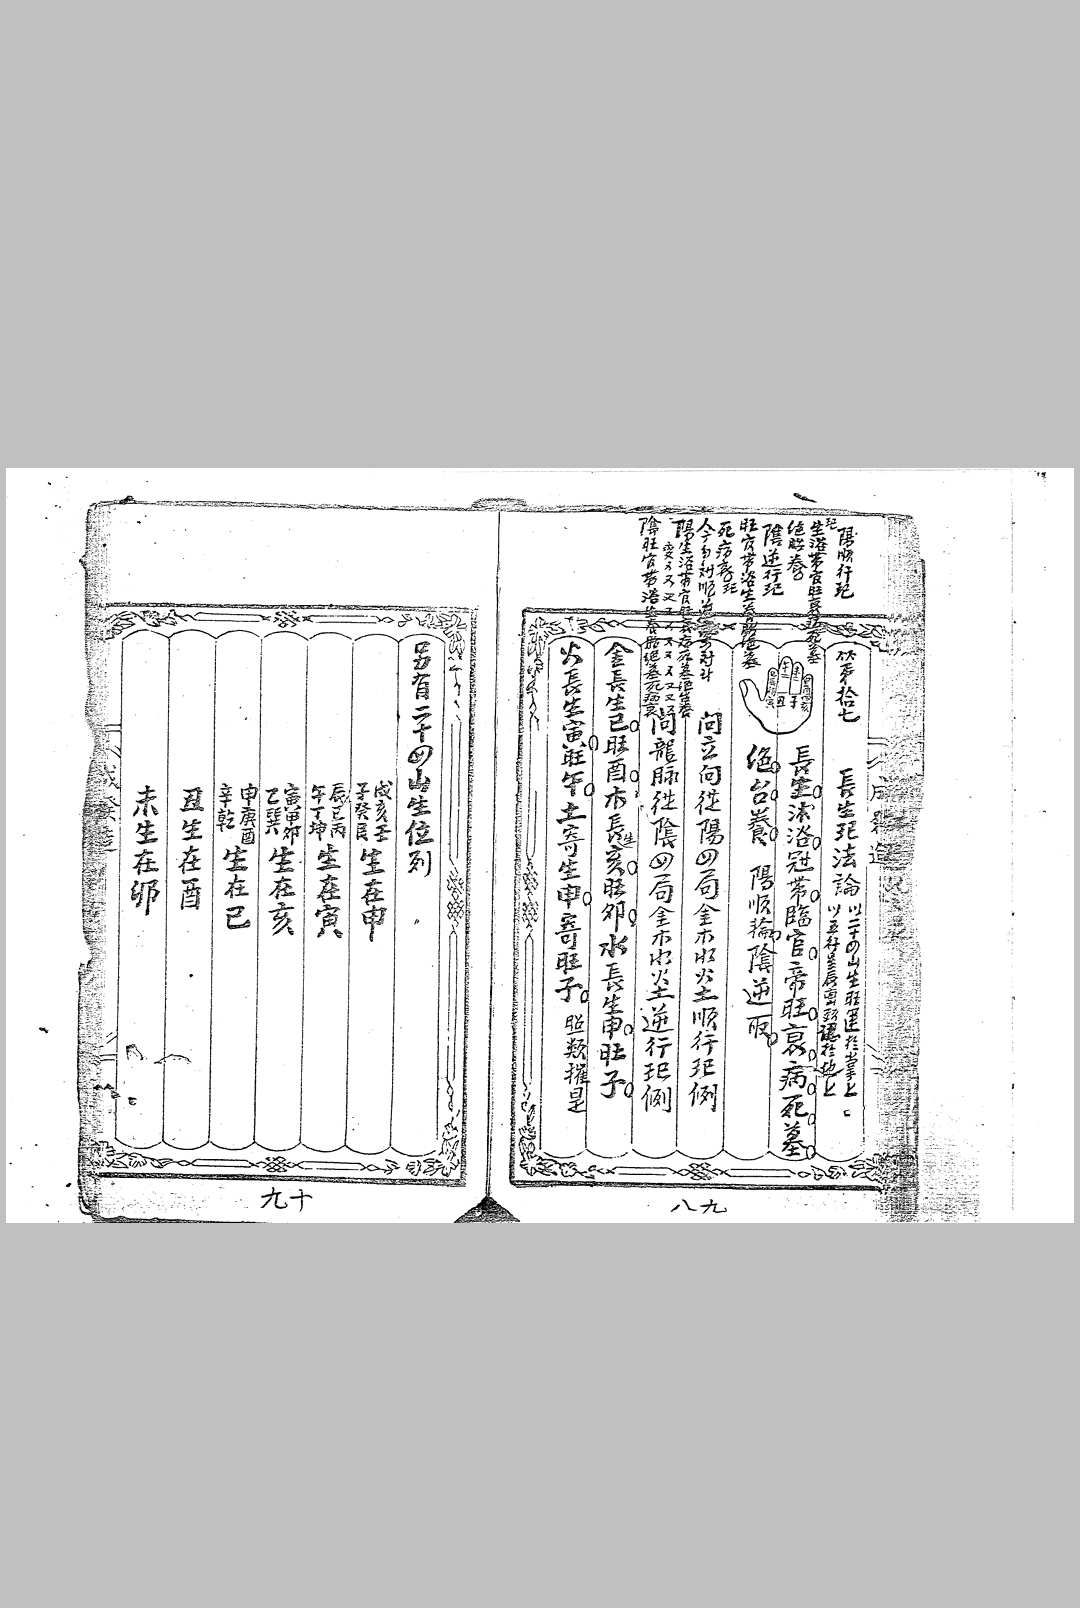 陽順行起
生浴帶官旺衰病死墓
絕胎養
陰逆行起
旺官帶浴生養胎絕墓
死病衰起
陽生浴帶官旺衰病死墓絕胎養
陰旺官帶浴生養胎絕墓死病衰
竹弟拾七
長生起法論
以二十四山生旺運於掌上
長生沐浴冠帶臨官帝旺衰病死墓
絕台養 陽順輪陰逆取
問立向從陽四局金木水火土順行起例
問龍脉從陰四局金木水火土逆行起例
金長生巳旺酉木長生亥旺卯水長生申旺子
火長生寅旺午土寄生申寄旺子 照類推是
八九
另有二十四山生位列
戌亥壬
子癸艮 生在申
辰巳丙
午丁坤 生在寅
寅甲卯
乙巽 生在亥
申庚酉
辛乾 生在巳
丑生在酉
未生在卯
九十